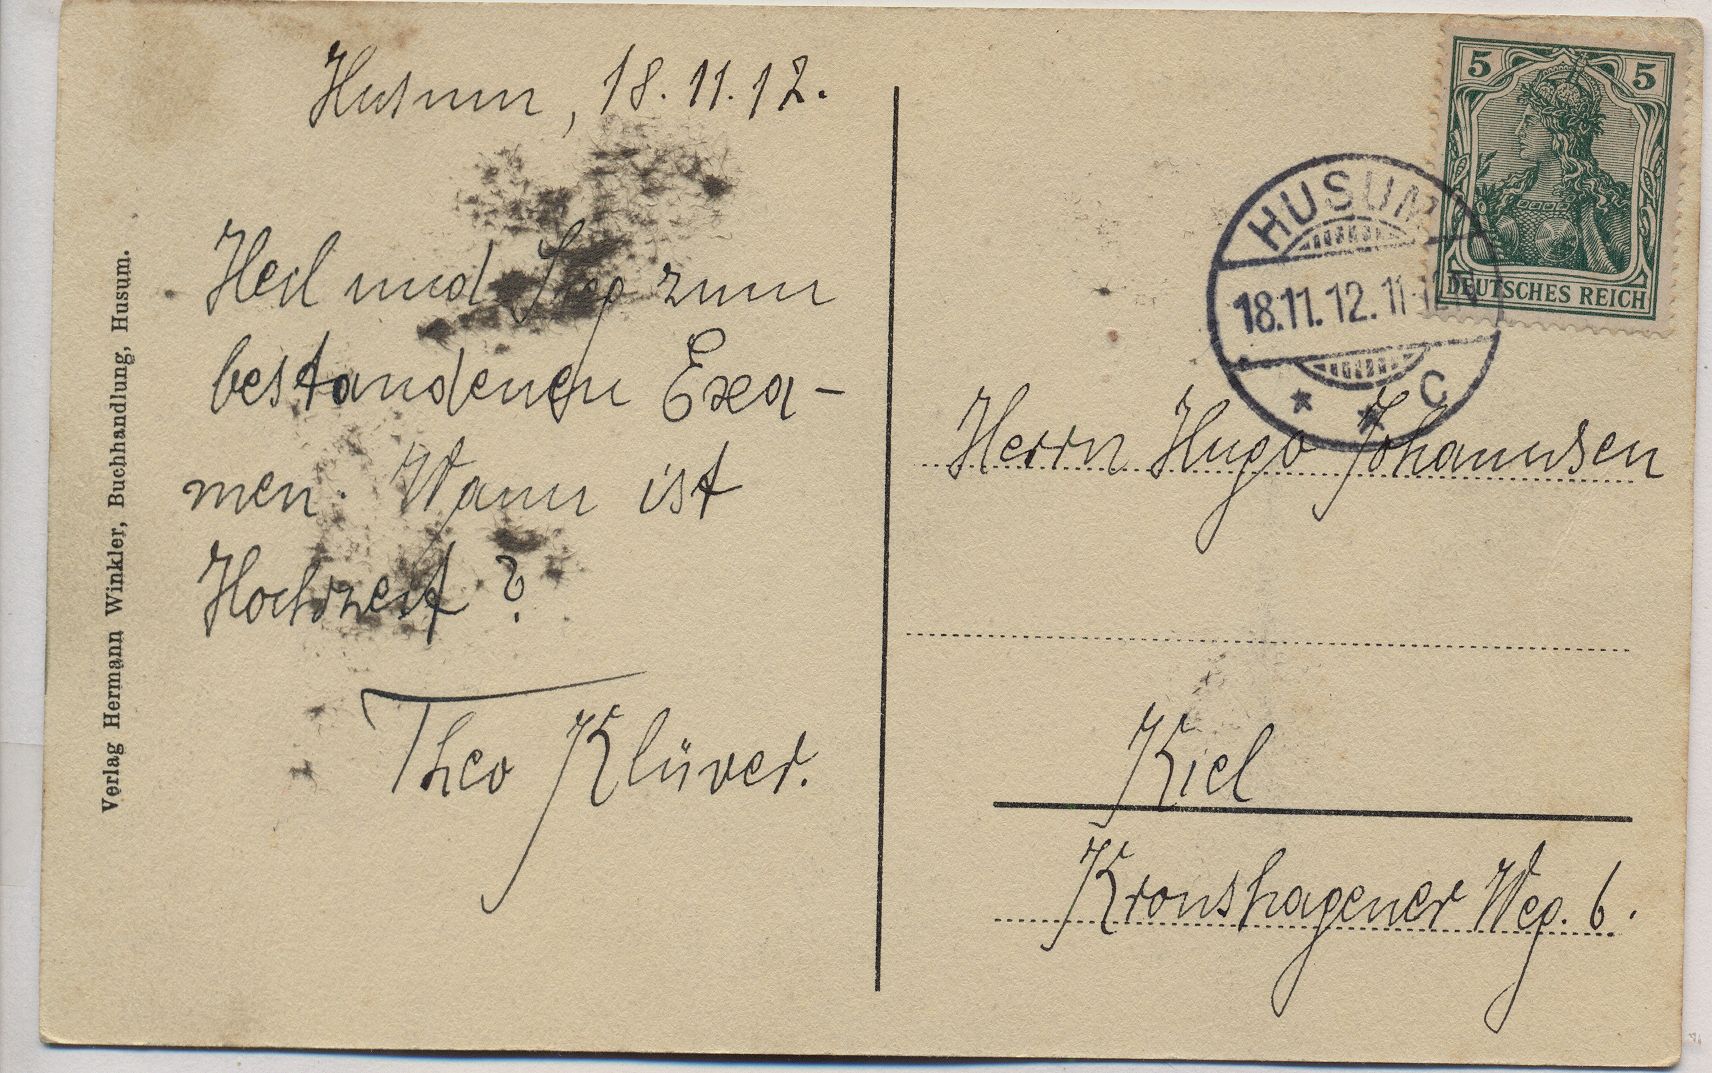 Husum, 18.11.12.
Heil und Sieg zum
bestandenen Exa-
men. Wann ist
Hochzeit?
Theo Klüver.
Verlag Hermann Winkler, Buchhandlung, Husum.
5 5
DEUTSCHES REICH
HUSUM
18.11.12. 11-
* * C
Herrn Hugo Johannsen
Kiel
Kronshagener Weg. 6.